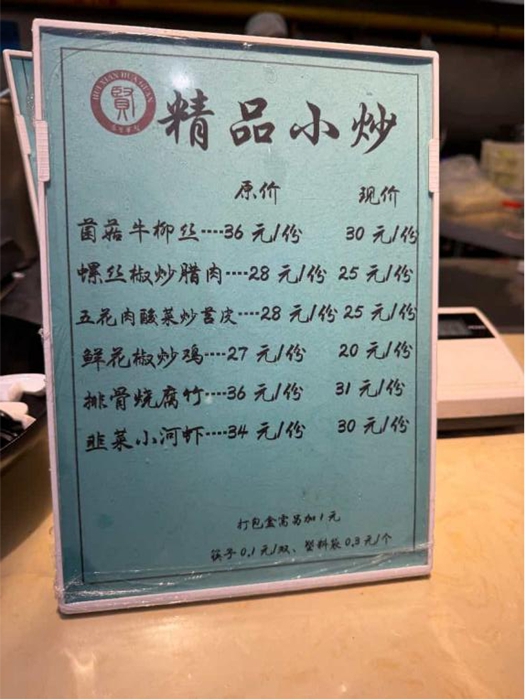 精品小炒
原价 现价
菌菇牛柳丝····36 元/份 30 元/份
螺丝椒炒腊肉····28 元/份 25 元/份
五花肉酸菜炒苕皮····28 元/份 25 元/份
鲜花椒炒鸡····27 元/份 20 元/份
排骨烧腐竹····36 元/份 31 元/份
韭菜小河虾····34 元/份 30 元/份
打包盒需另加1元
筷子0.1元/双、塑料袋0.3元/个
賢